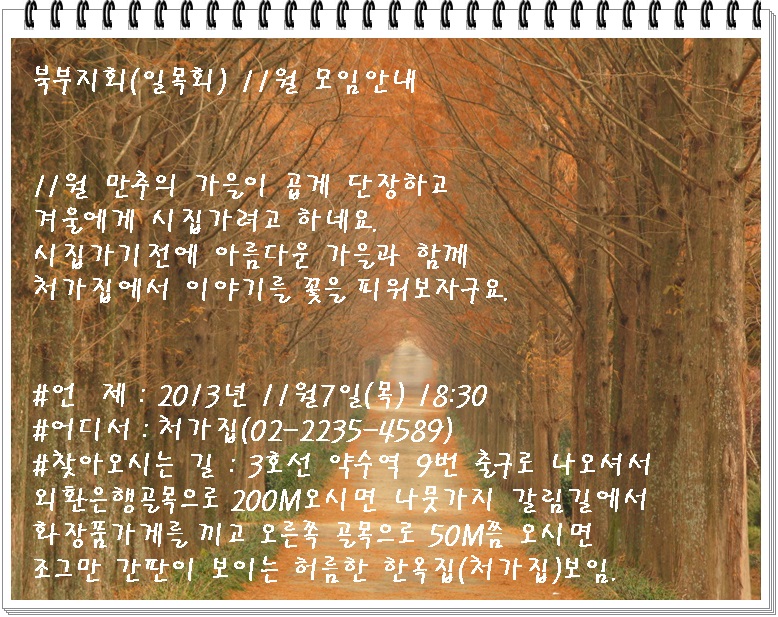 북부지회(일목회) 11월 모임안내
11월 만추의 가을이 곱게 단장하고
겨울에게 시집가려고 하네요.
시집가기전에 아름다운 가을과 함께
처가집에서 이야기를 꽃을 피워보자구요.
#언 제 : 2013년 11월7일(목) 18:30
#어디서 : 처가집(02-2235-4589)
#찾아오시는 길 : 3호선 약수역 9번 출구로 나오셔서
외환은행골목으로 200M오시면 나뭇가지 갈림길에서
화장품가게를 끼고 오른쪽 골목으로 50M쯤 오시면
조그만 간판이 보이는 허름한 한옥집(처가집)보임.